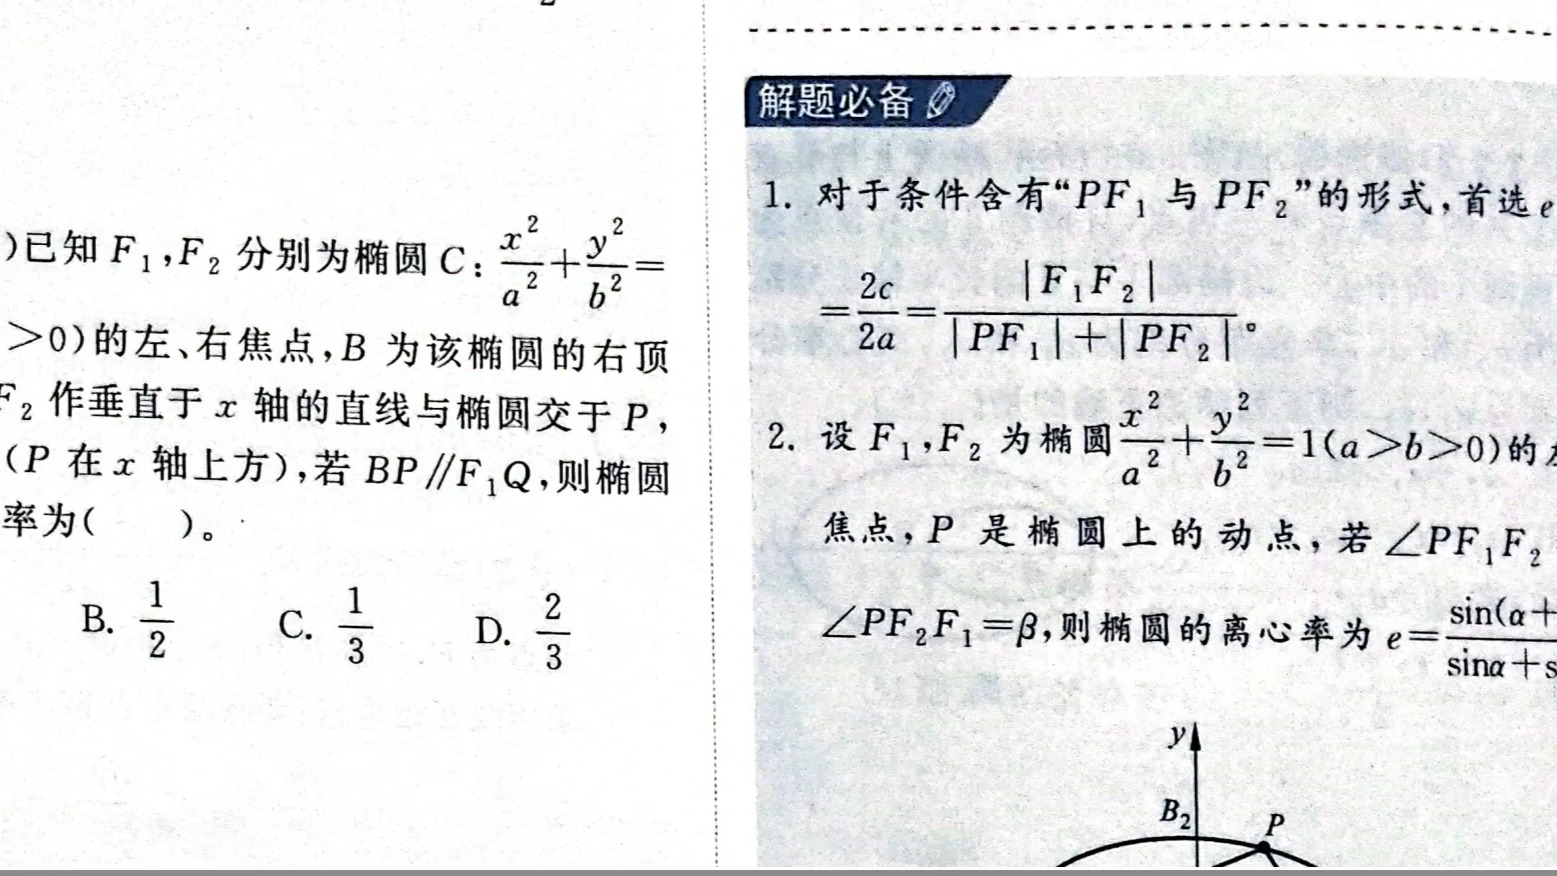 )已知 F₁,F₂ 分别为椭圆 C: x²/a²+y²/b²=
>0)的左、右焦点,B 为该椭圆的右顶
F₂ 作垂直于 x 轴的直线与椭圆交于 P,
(P 在 x 轴上方),若 BP∥F₁Q,则椭圆
率为(  )。
B. 1/2  C. 1/3  D. 2/3
解题必备
1. 对于条件含有“PF₁ 与 PF₂”的形式,首选 e
=2c/2a=|F₁F₂|/(|PF₁|+|PF₂|)。
2. 设 F₁,F₂ 为椭圆 x²/a²+y²/b²=1(a>b>0)的
焦点,P 是椭圆上的动点,若∠PF₁F₂
∠PF₂F₁=β,则椭圆的离心率为 e=sin(α+/sinα+s
y
B₂ P